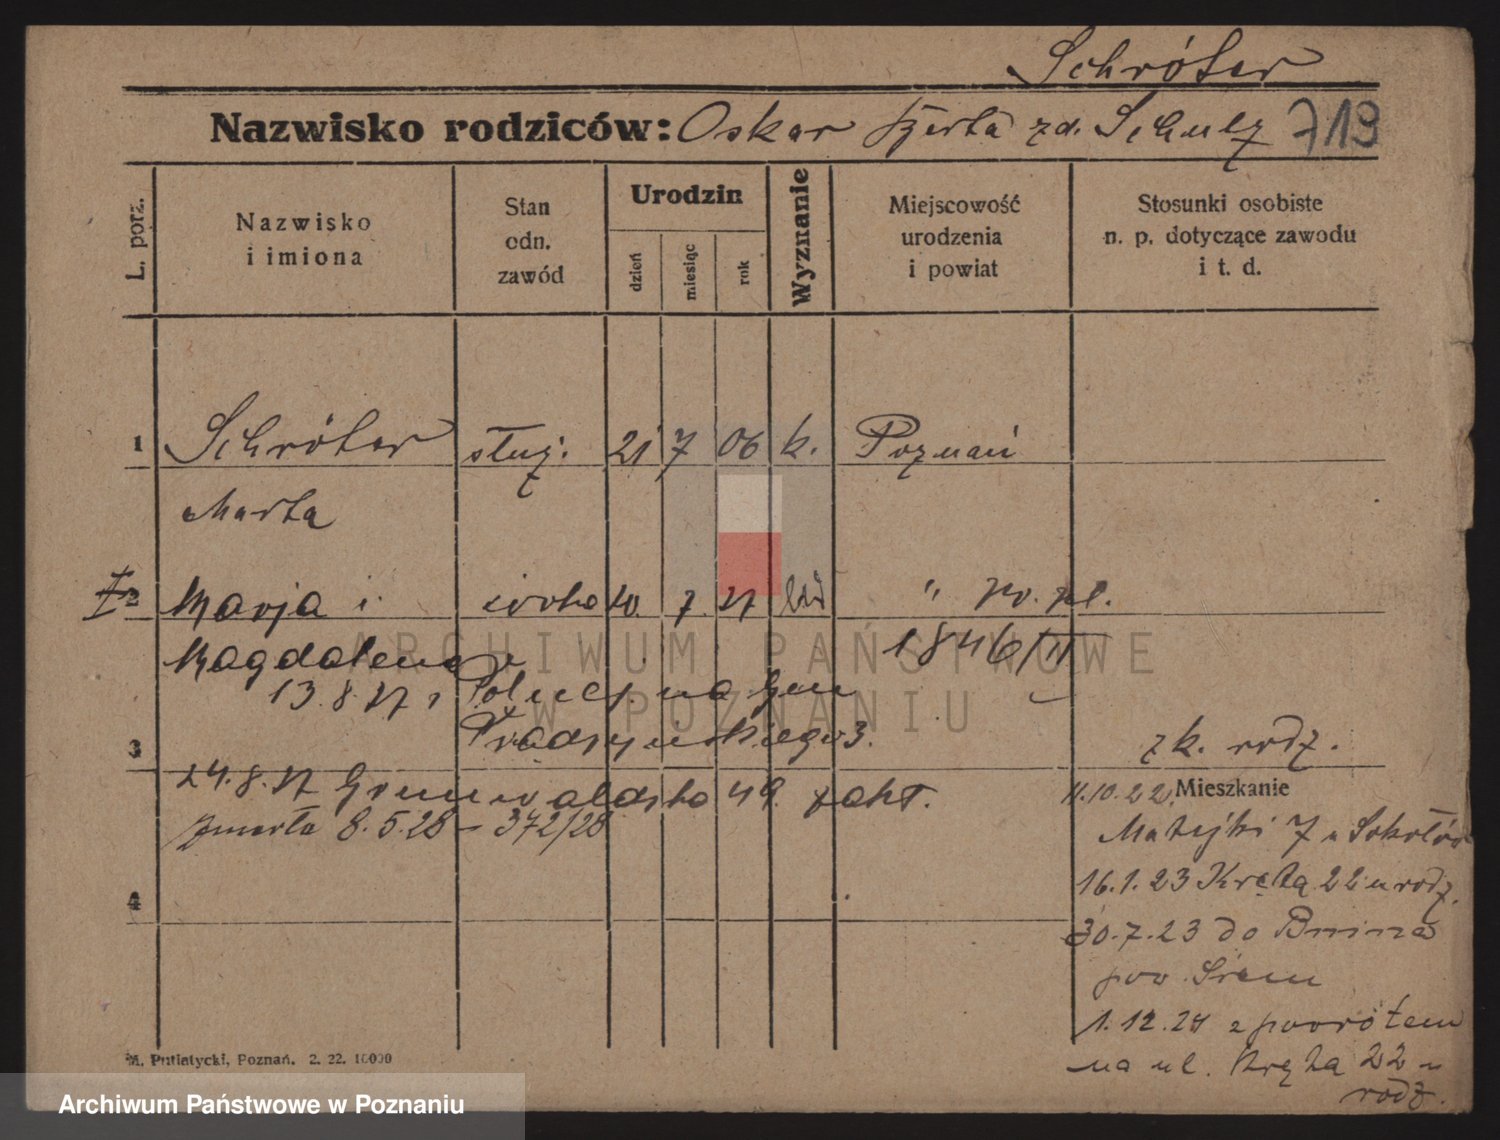 Schröter
Nazwisko rodziców: Oskar Berta zd. Schulz 719
L. porz.
Nazwisko
i imiona
Stan
odn.
zawód
Urodzin
dzień
miesiąc
rok
Wyznanie
Miejscowość
urodzenia
i powiat
Stosunki osobiste
n. p. dotyczące zawodu
i t. d.
1 Schröter służ. 21 7 06 k. Poznań
Marta
2 Marja i córka 20. 7. 27 " 
Magdalena 1846/II
13.8.27 na
Prądzyńskiego 3.
3
zk. rodz.
24.8.27 Grunwaldzka 49.
zmarła 8.5.28 – 372/28
4
Mieszkanie
11.10.22.
Matejki 7 u
16.1.23 Kręta 22 u rodz.
30.7.23 do Bnina
pow. Śrem
1.12.24 z powrotem
na ul. Kręta 22 u
rodz.
M. Putiatycki, Poznań. 2. 22. 10000
ARCHIWUM PAŃSTWOWE
W POZNANIU
Archiwum Państwowe w Poznaniu